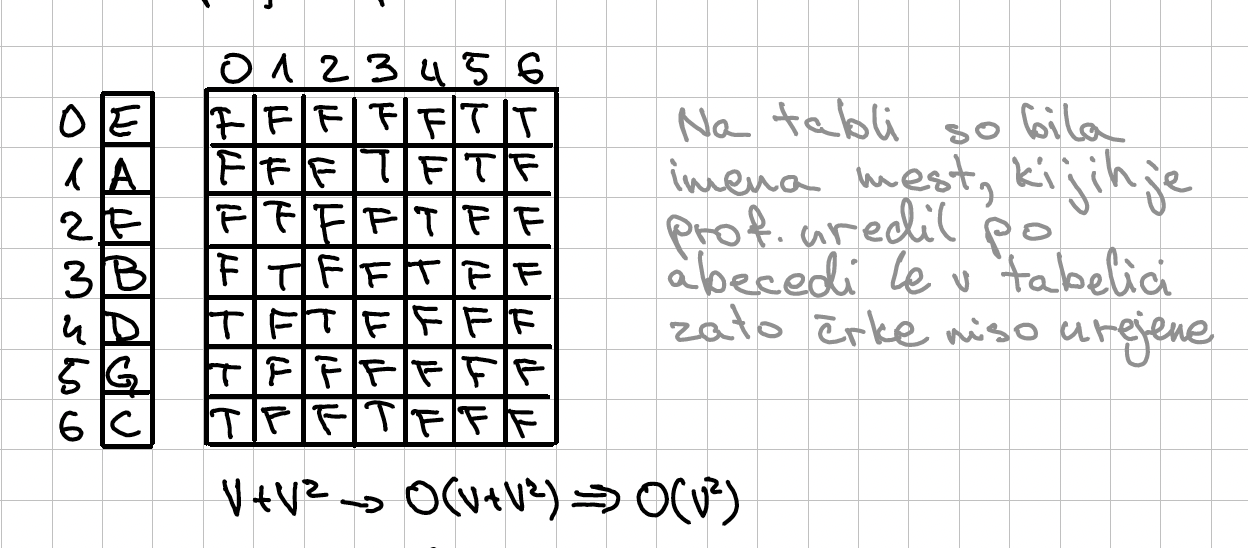 0 1 2 3 4 5 6
0 E F F F F F T T
1 A F F F T F T F
2 F F F F F T F F
3 B F T F F T F F
4 D T F T F F F F
5 G T F F F F F F
6 C T F F T F F F
Na tabli so bila
imena mest, ki jih je
prof. uredil po
abecedi le v tabelici
zato črke niso urejene
V+V² → O(V+V²) ⇒ O(V²)